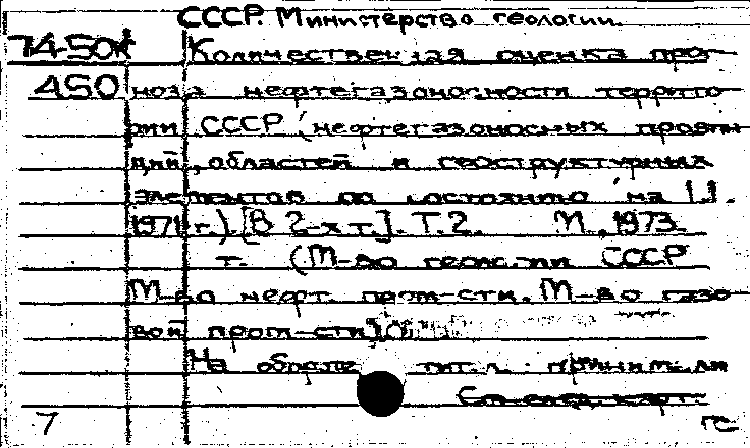 СССР. Министерство геологии.
74-50к Количественная оценка прог-
450 ноза нефтегазоносности террито-
рии СССР (нефтегазоносных провин-
ций, областей и геоструктурных
элементов по состоянию на 1.1.
1971 г.). [В 2-х т.]. Т.2. М., 1973.
т. (М-во геологии СССР
М-во нефт. пром-сти. М-во газо-
вой пром-сти).
На обороте тит. л. принимали
7 гс